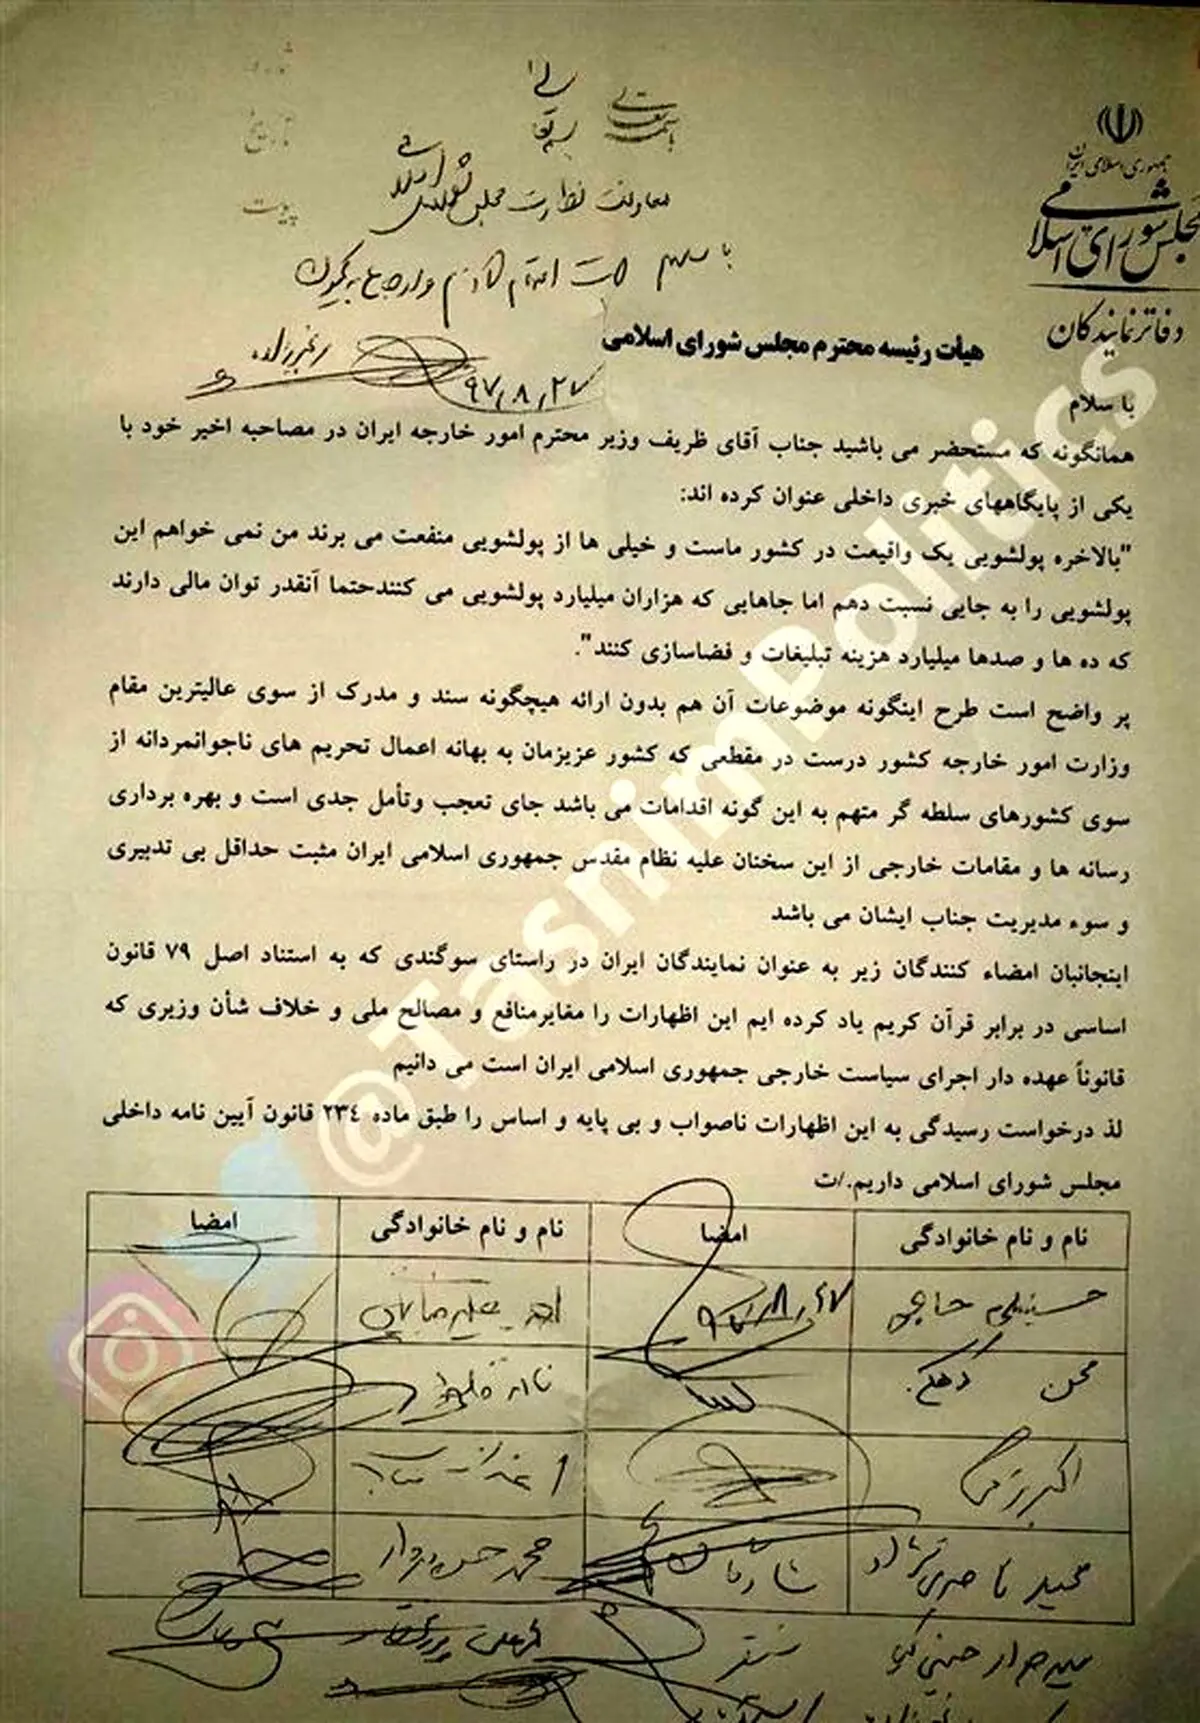 باسمه تعالی
جمهوری اسلامی ایران
مجلس شورای اسلامی
دفاتر نمایندگان
شماره
تاریخ
پیوست
معاونت نظارت مجلس شورای اسلامی
با سلام جهت اقدام لازم و ارجاع به کمیسیون
۹۷/۸/۲۷
هیأت رئیسه محترم مجلس شورای اسلامی
با سلام
همانگونه که مستحضر می باشید جناب آقای ظریف وزیر محترم امور خارجه ایران در مصاحبه اخیر خود با
یکی از پایگاههای خبری داخلی عنوان کرده اند:
"بالاخره پولشویی یک واقیعت در کشور ماست و خیلی ها از پولشویی منفعت می برند من نمی خواهم این
پولشویی را به جایی نسبت دهم اما جاهایی که هزاران میلیارد پولشویی می کنندحتما آنقدر توان مالی دارند
که ده ها و صدها میلیارد هزینه تبلیغات و فضاسازی کنند".
پر واضح است طرح اینگونه موضوعات آن هم بدون ارائه هیچگونه سند و مدرک از سوی عالیترین مقام
وزارت امور خارجه کشور درست در مقطعی که کشور عزیزمان به بهانه اعمال تحریم های ناجوانمردانه از
سوی کشورهای سلطه گر متهم به این گونه اقدامات می باشد جای تعجب وتأمل جدی است و بهره برداری
رسانه ها و مقامات خارجی از این سخنان علیه نظام مقدس جمهوری اسلامی ایران مثبت حداقل بی تدبیری
و سوء مدیریت جناب ایشان می باشد
اینجانبان امضاء کنندگان زیر به عنوان نمایندگان ایران در راستای سوگندی که به استناد اصل ۷۹ قانون
اساسی در برابر قرآن کریم یاد کرده ایم این اظهارات را مغایرمنافع و مصالح ملی و خلاف شأن وزیری که
قانوناً عهده دار اجرای سیاست خارجی جمهوری اسلامی ایران است می دانیم
لذ درخواست رسیدگی به این اظهارات ناصواب و بی پایه و اساس را طبق ماده ۲۳٤ قانون آیین نامه داخلی
مجلس شورای اسلامی داریم./ت
نام و نام خانوادگی امضا نام و نام خانوادگی امضا
حسینعلی حاجی
محسن کوهکن نادر
اکبر
مجید ناصری نژاد محمد
سید جواد حسینی کیا
@TasnimPolitics